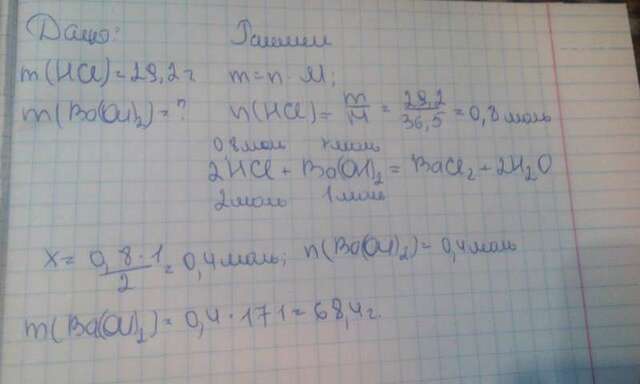 Дано:
Рішення
m(HCl)=29,2 г
m=n·M;
m(Ba(OH)₂)=?
n(HCl)= m/M = 29,2/36,5 = 0,8 моль
0,8 моль x моль
2HCl + Ba(OH)₂ = BaCl₂ + 2H₂O
2 моль 1 моль
x= 0,8·1/2 = 0,4 моль; n(Ba(OH)₂)= 0,4 моль
m(Ba(OH)₂)= 0,4·171=68,4 г.